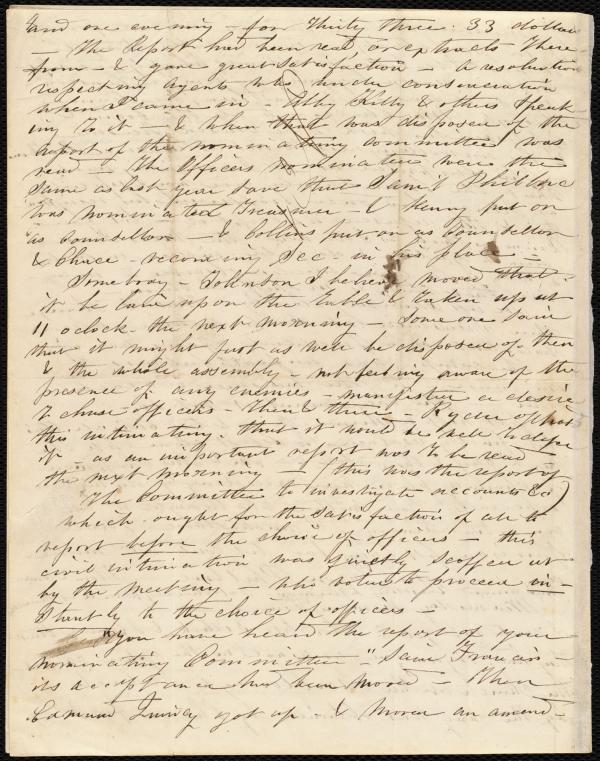 and one evening - for thirty three : 33 dollars
- The Report had been read, or extracts there-
from - & gave great satisfaction - a resolution
respecting agents was under consideration
when I came in - Abby Kelly & others speak-
ing to it - & when that was disposed of the
report of the nominating committee was
read - The Officers nominated were the
same as last year save that Sam'l Philbric
was nominated Treasurer - & Kenny put on
as Counsellor - & Collins put on as Counsellor
& Chace - recording Sec - in his place -
Somebody - Johnson I believe moved that
it be laid upon the table & taken up at
11 oclock the next morning - Some one said
that it might just as well be disposed of then
& the whole assembly - not feeling aware of the
presence of any enemies - manifested a desire
to chuse officers - then & there - Ryder opposed
this intimating that it would be well to defer
it - as an important report was to be read
the next morning - (this was the report of
the Committee to investigate accounts &c)
which ought for the satisfaction of all to
report before the choice of officers - this
civil intimation was directly scoffed at
by the meeting - who voted to proceed in-
stantly to the choice of officers -
"You have heard the report of your
nominating Committee" said Francis -
its acceptance had been moved - When
Edmund Quincy got up & moved an amend-